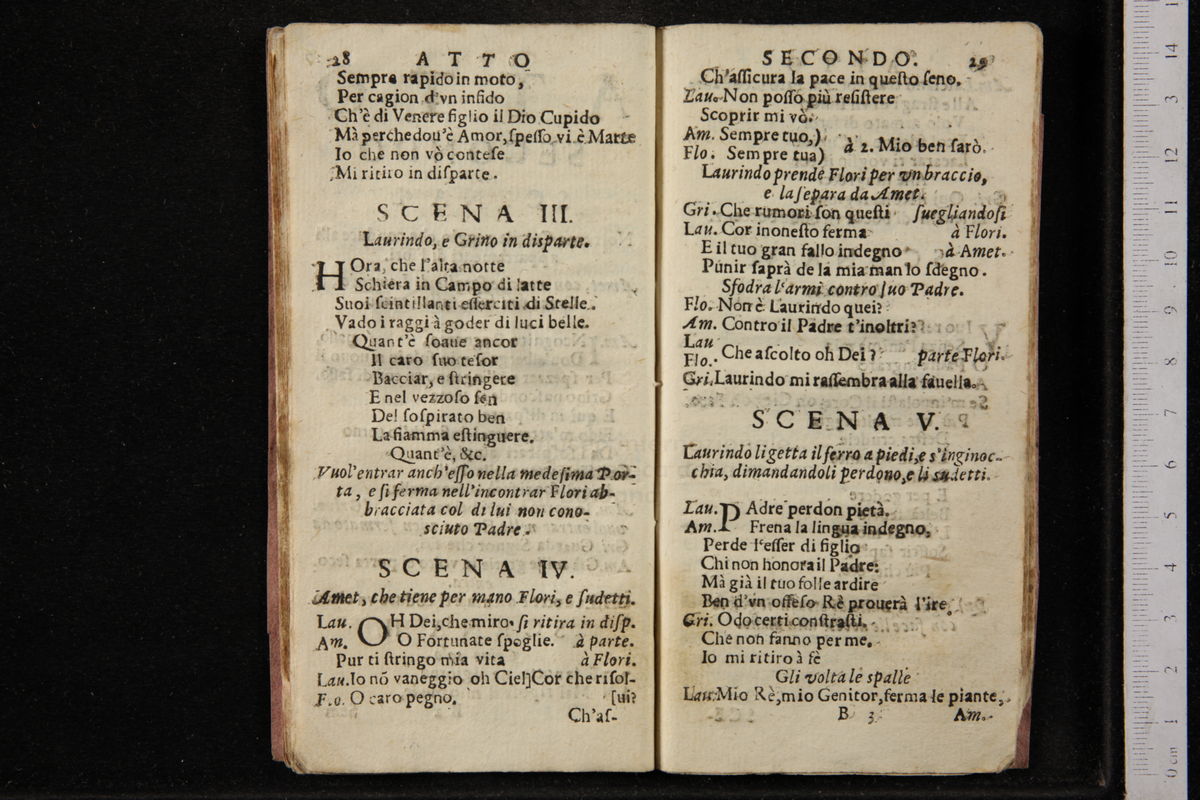 28 ATTO
Sempre rapido in moto,
Per cagion d'vn infido
Ch'è di Venere figlio il Dio Cupido
Mà perche dou'è Amor, ſpeſſo vi è Marte
Io che non vò conteſe
Mi ritiro in diſparte.
SCENA III.
Laurindo, e Grino in disparte.
HOra, che l'alta notte
Schiera in Campo di latte
Suoi ſcintillanti eſſerciti di Stelle.
Vado i raggi à goder di luci belle.
Quant'è ſoaue ancor
Il caro ſuo teſor
Bacciar, e ſtringere
E nel vezzoſo ſen
Del ſoſpirato ben
La fiamma eſtinguere.
Quant'è, &c.
Vuol'entrar anch'eſſo nella medeſima Por-
ta, e ſi ferma nell'incontrar Flori ab-
bracciata col di lui non cono-
sciuto Padre.
SCENA IV.
Amet, che tiene per mano Flori, e ſudetti.
Lau. OH Dei, che miro. ſi ritira in diſp.
Am. O Fortunate ſpoglie. à parte.
Pur ti ſtringo mia vita à Flori.
Lau. Io nõ vaneggio oh Ciel] Cor che riſol-
F.o. O caro pegno. [ui?
Ch'aſ-
SECONDO. 29
Ch'aſſicura la pace in queſto ſeno.
Lau. Non poſſo più reſiſtere
Scoprir mi vò.
Am. Sempre tuo,)
Flo. Sempre tua) à 2. Mio ben ſarò.
Laurindo prende Flori per vn braccio,
e la ſepara da Amet.
Gri. Che rumori ſon queſti ſuegliandoſi
Lau. Cor inoneſto ferma à Flori.
E il tuo gran fallo indegno à Amet.
Punir ſaprà de la mia man lo ſdegno.
Sfodra l'armi contro ſuo Padre.
Flo. Non è Laurindo quei?
Am. Contro il Padre t'inoltri?
Lau
Flo. Che aſcolto oh Dei? parte Flori.
Gri. Laurindo mi raſſembra alla fauella.
SCENA V.
Laurindo li getta il ferro a piedi, e s'inginoc-
chia, dimandandoli perdono, e li sudetti.
Lau. PAdre perdon pietà.
Am. Frena la lingua indegno,
Perde l'eſſer di figlio
Chi non honora il Padre:
Mà già il tuo folle ardire
Ben d'vn offeſo Rè prouerà l'ire
Gri. Odo certi conſtraſti.
Che non fanno per me.
Io mi ritiro à fè
Gli volta le spalle
Lau. Mio Rè, mio Genitor, ferma le piante,
B 3 Am.